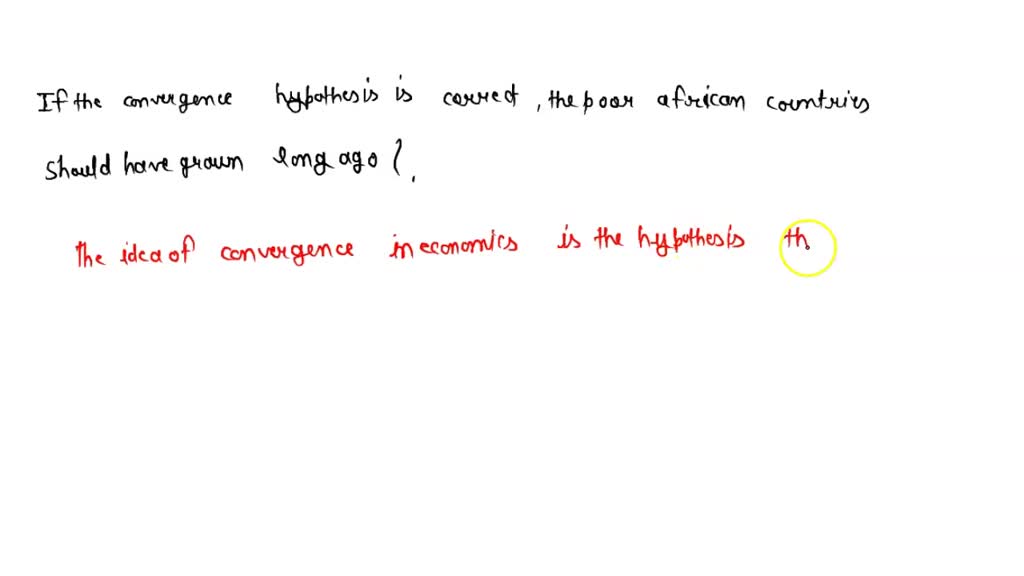 If the convergence hypothesis is correct, the poor african countries
should have grown long ago ?.
the idea of convergence in economics is the hypothesis th